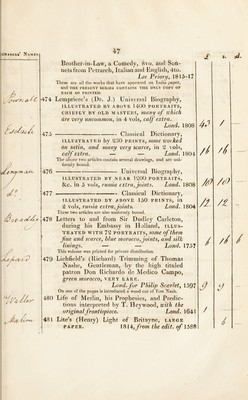 47
£ s. d.
Brother-in-Law, a Comedy, 8vo. and Sonnets from Petrarch, Italian and English, 4to.
Lee Priory, 1815-17
These are all the works that have appeared on India paper, and the present series contains the only copy of each so printed.
474 Lempriere's (Dr. J.) Universal Biography,
illustrated by above 1400 portraits,
chiefly by old masters, many of which
are very uncommon, in 4 vols, calf extra.
Lond. 1808
475 ——— Classical Dictionary,
illustrated by 230 prints, some worked
on satin, and many very scarce, in 2 vols,
calf extra. — Lond. 1804
The above two articles contain several drawings, and are uniformly bound.
476 ——— Universal Biography,
illustrated by near 1200 portraits,
&c. in 5 vols, russia extra, joints. Lond. 1808
477 ——— Classical Dictionary,
illustrated by above 150 prints, in
2 vols, russia extra, joints. Lond. 1804
These two articles are also uniformly bound.
478 Letters to and from Sir Dudley Carleton,
during his Embassy in Holland, illustrated
with 72 portraits, some of them
fine and scarce, blue morocco, joints, and silk
linings. — Lond. 1757
This volume was printed for private distribution.
479 Lichfield's (Richard) Trimming of Thomas
Nashe, Gentleman, by the high titaled
patron Don Richardo de Medico Campo,
green morocco, very rare.
Lond. for Philip Scarlet, 1597
On one of the pages is introduced a wood cut of Tom Nash.
480 Life of Merlin, his Prophesies, and Predictions
interpreted by T. Heywood, with the
original frontispiece. Lond. 1641
481 Lite's (Henry) Light of Britayne, large
paper. 1814, from the edit. of 1588